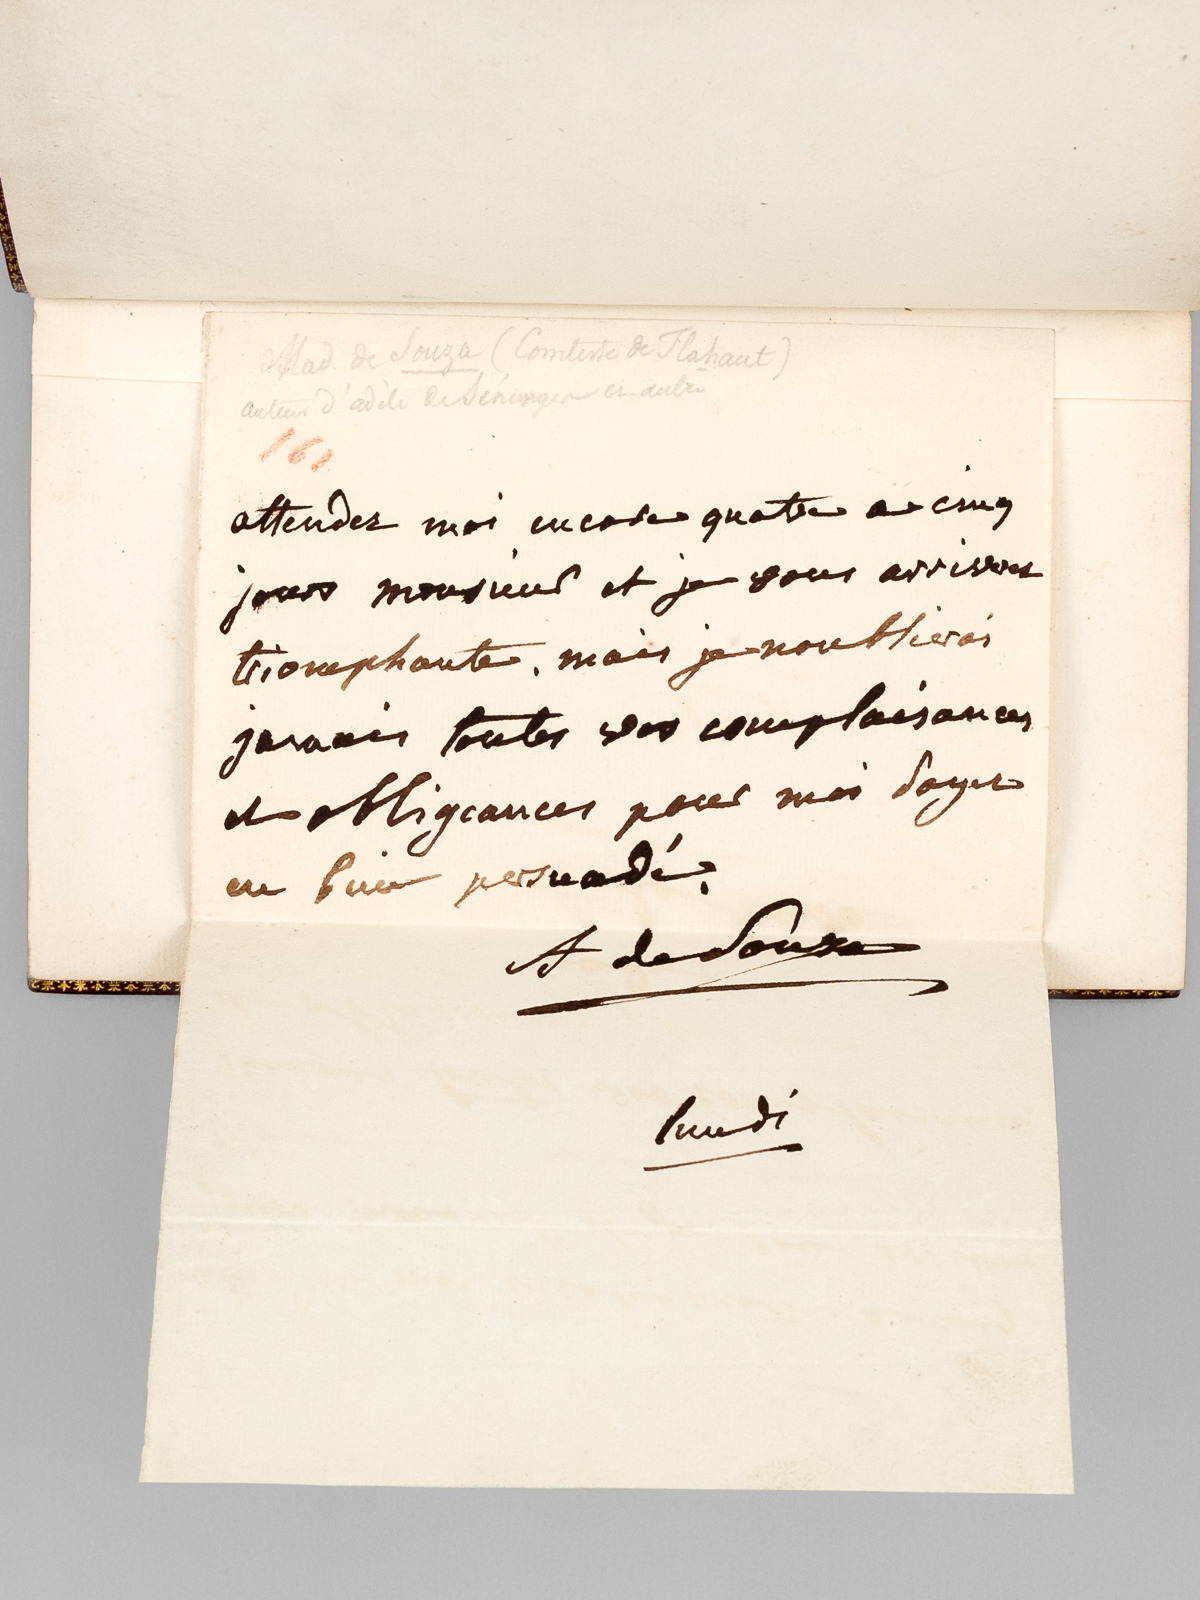 Mad. de Souza (Comtesse de Flahaut)
auteur d'adèle de Sénanges
161
attendez moi encore quatre a cinq
jours monsieur et je vous arriveres
triomphante. mais je noublierai
jamais toutes vos complaisances
et obligeances pour moi soyez
en bien persuadé.
A de Souza
lundi